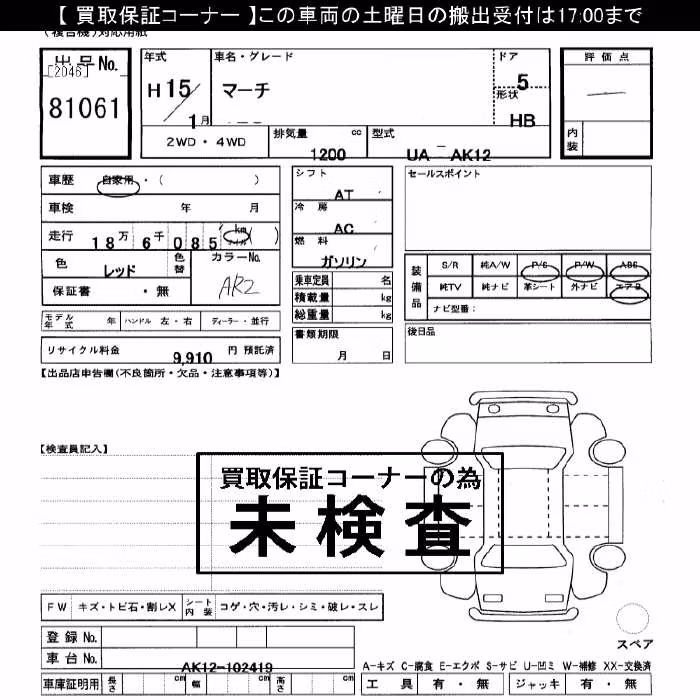 【 買取保証コーナー 】この車両の土曜日の搬出受付は17:00まで
(複合機)対応用紙
出品No.
[2046]
81061
年式 車名・グレード ドア 評価点
H 15/1月 マーチ 5
形状
HB
2WD・4WD 排気量 cc 型式 内装
1200 UA - AK12
車歴 自家用・( )
シフト セールスポイント
AT
車検 年 月
冷房
AC
走行 18万6千085 km
燃料
ガソリン
色 色替 カラーNo.
レッド AR2
保証書 ・無
乗車定員 名
積載量 kg
総重量 kg
装備品 S/R 純A/W P/S P/W ABS
純TV 純ナビ 革シート 外ナビ エアB
ナビ型番:
モデル年式 年 ハンドル 左・右 ディーラー・並行
書類期限
月 日
後日品
リサイクル料金 9,910 円 預託済
【出品店申告欄(不良箇所・欠品・注意事項等)】
【検査員記入】
買取保証コーナーの為
未検査
FW キズ・トビ石・割レX シート内装 コゲ・穴・汚レ・シミ・破レ・スレ
登録No.
車台No. AK12-102419
スペア
A-キズ C-腐食 E-エクボ S-サビ U-凹ミ W-補修 XX-交換済
車庫証明用 長さ cm 幅 cm 高さ cm 工具 有・無 ジャッキ 有・無